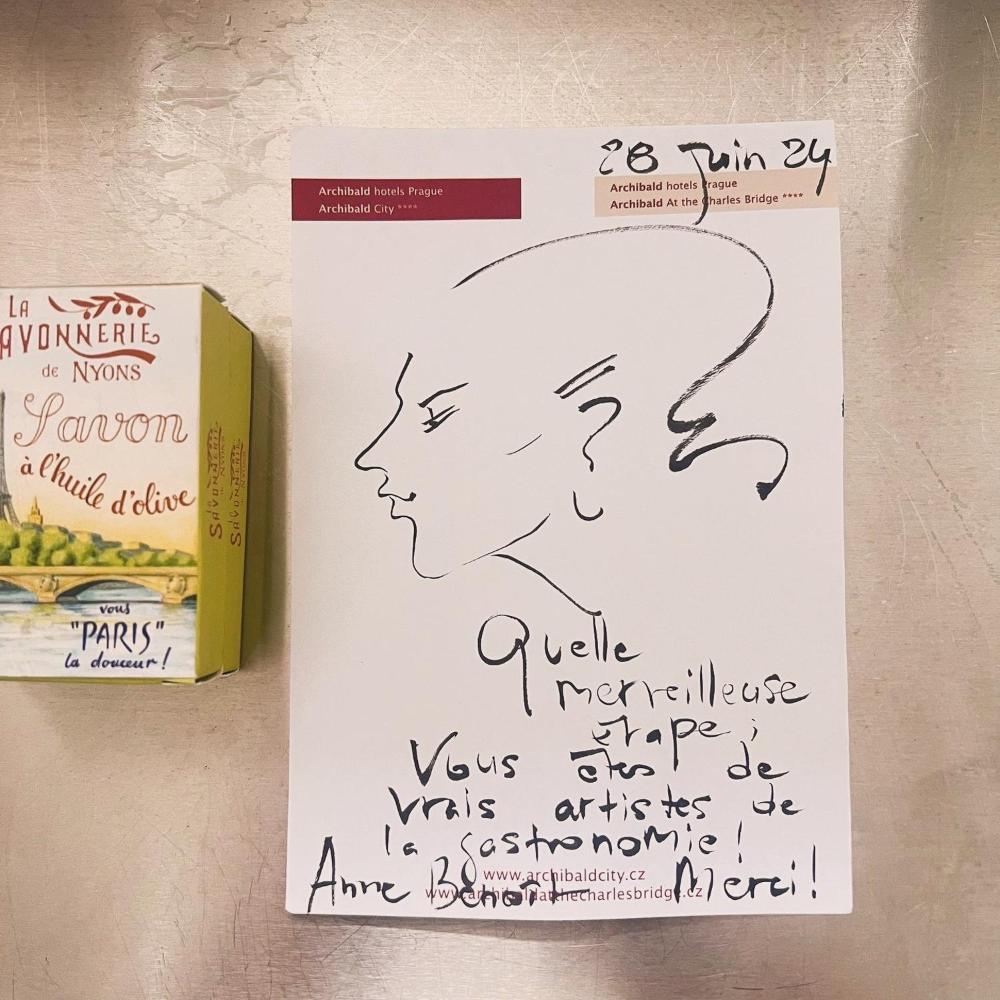 LA
SAVONNERIE
de NYONS
Savon
à l'huile d'olive
vous
"PARIS"
la douceur!
SAVONNERIE
SAVONNERIE
28 Juin 24
Archibald hotels Prague
Archibald City ****
Archibald hotels Prague
Archibald At the Charles Bridge ****
Quelle
merveilleuse
étape ;
Vous êtes de
vrais artistes de
la gastronomie !
Anne Benoît Merci !
www.archibaldcity.cz
www.archibaldatthecharlesbridge.cz